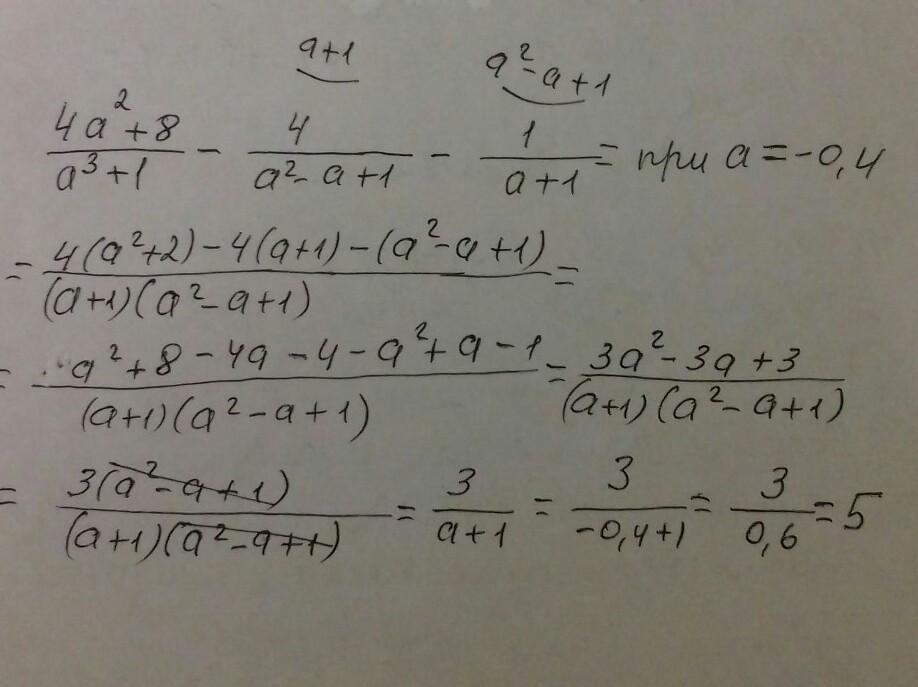 a+1 a²-a+1
(4a²+8)/(a³+1) - 4/(a²-a+1) - 1/(a+1) = при a=-0,4
= (4(a²+2)-4(a+1)-(a²-a+1))/((a+1)(a²-a+1)) =
= (a²+8-4a-4-a²+a-1)/((a+1)(a²-a+1)) = (3a²-3a+3)/((a+1)(a²-a+1))
= (3(a²-a+1))/((a+1)(a²-a+1)) = 3/(a+1) = 3/(-0,4+1) = 3/(0,6) = 5